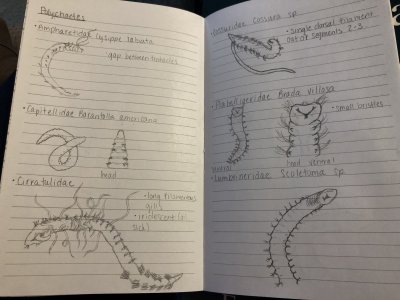 Polychaetes
• Ampharetidae Lysippe labiata
gap between tentacles
• Capitellidae Barantolla americana
head
• Cirratulidae
- long filamentous
gills
• iridescent (oil
slick)
• Cossuridae Cossura sp
• single dorsal filament
out of segments 2-3
• Flabelligeridae Brada villosa
• small bristles
ventral
head ventral
• Lumbrineridae Scoletoma sp.